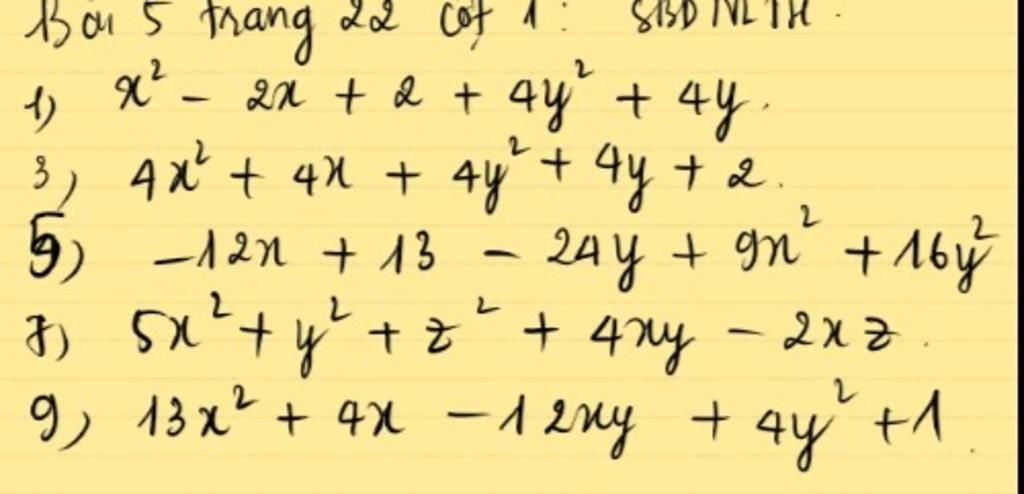 Bài 5 trang 22 cột 1: SBD NLTH.
1) x² - 2x + 2 + 4y² + 4y.
3) 4x² + 4x + 4y² + 4y + 2.
5) -12x + 13 - 24y + 9x² + 16y²
7) 5x² + y² + z² + 4xy - 2xz.
9) 13x² + 4x - 12xy + 4y² + 1.